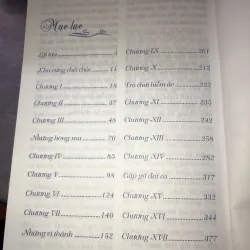 Mục lục
Lời tựa 5
Khu rừng chết chóc 11
Chương I 18
Chương II 37
Chương III 48
Những bóng ma 70
Chương IV 85
Chương V 98
Chương VI 124
Chương VII 140
Những vị thánh 152
Chương IX 201
Chương X 213
Trò chơi hiểm ác 222
Chương XI 235
Chương XII 242
Chương XIII 258
Chương XIV 282
Gặp gỡ đại ca 317
Chương XV 334
Chương XVI 344
Chương XVII 377